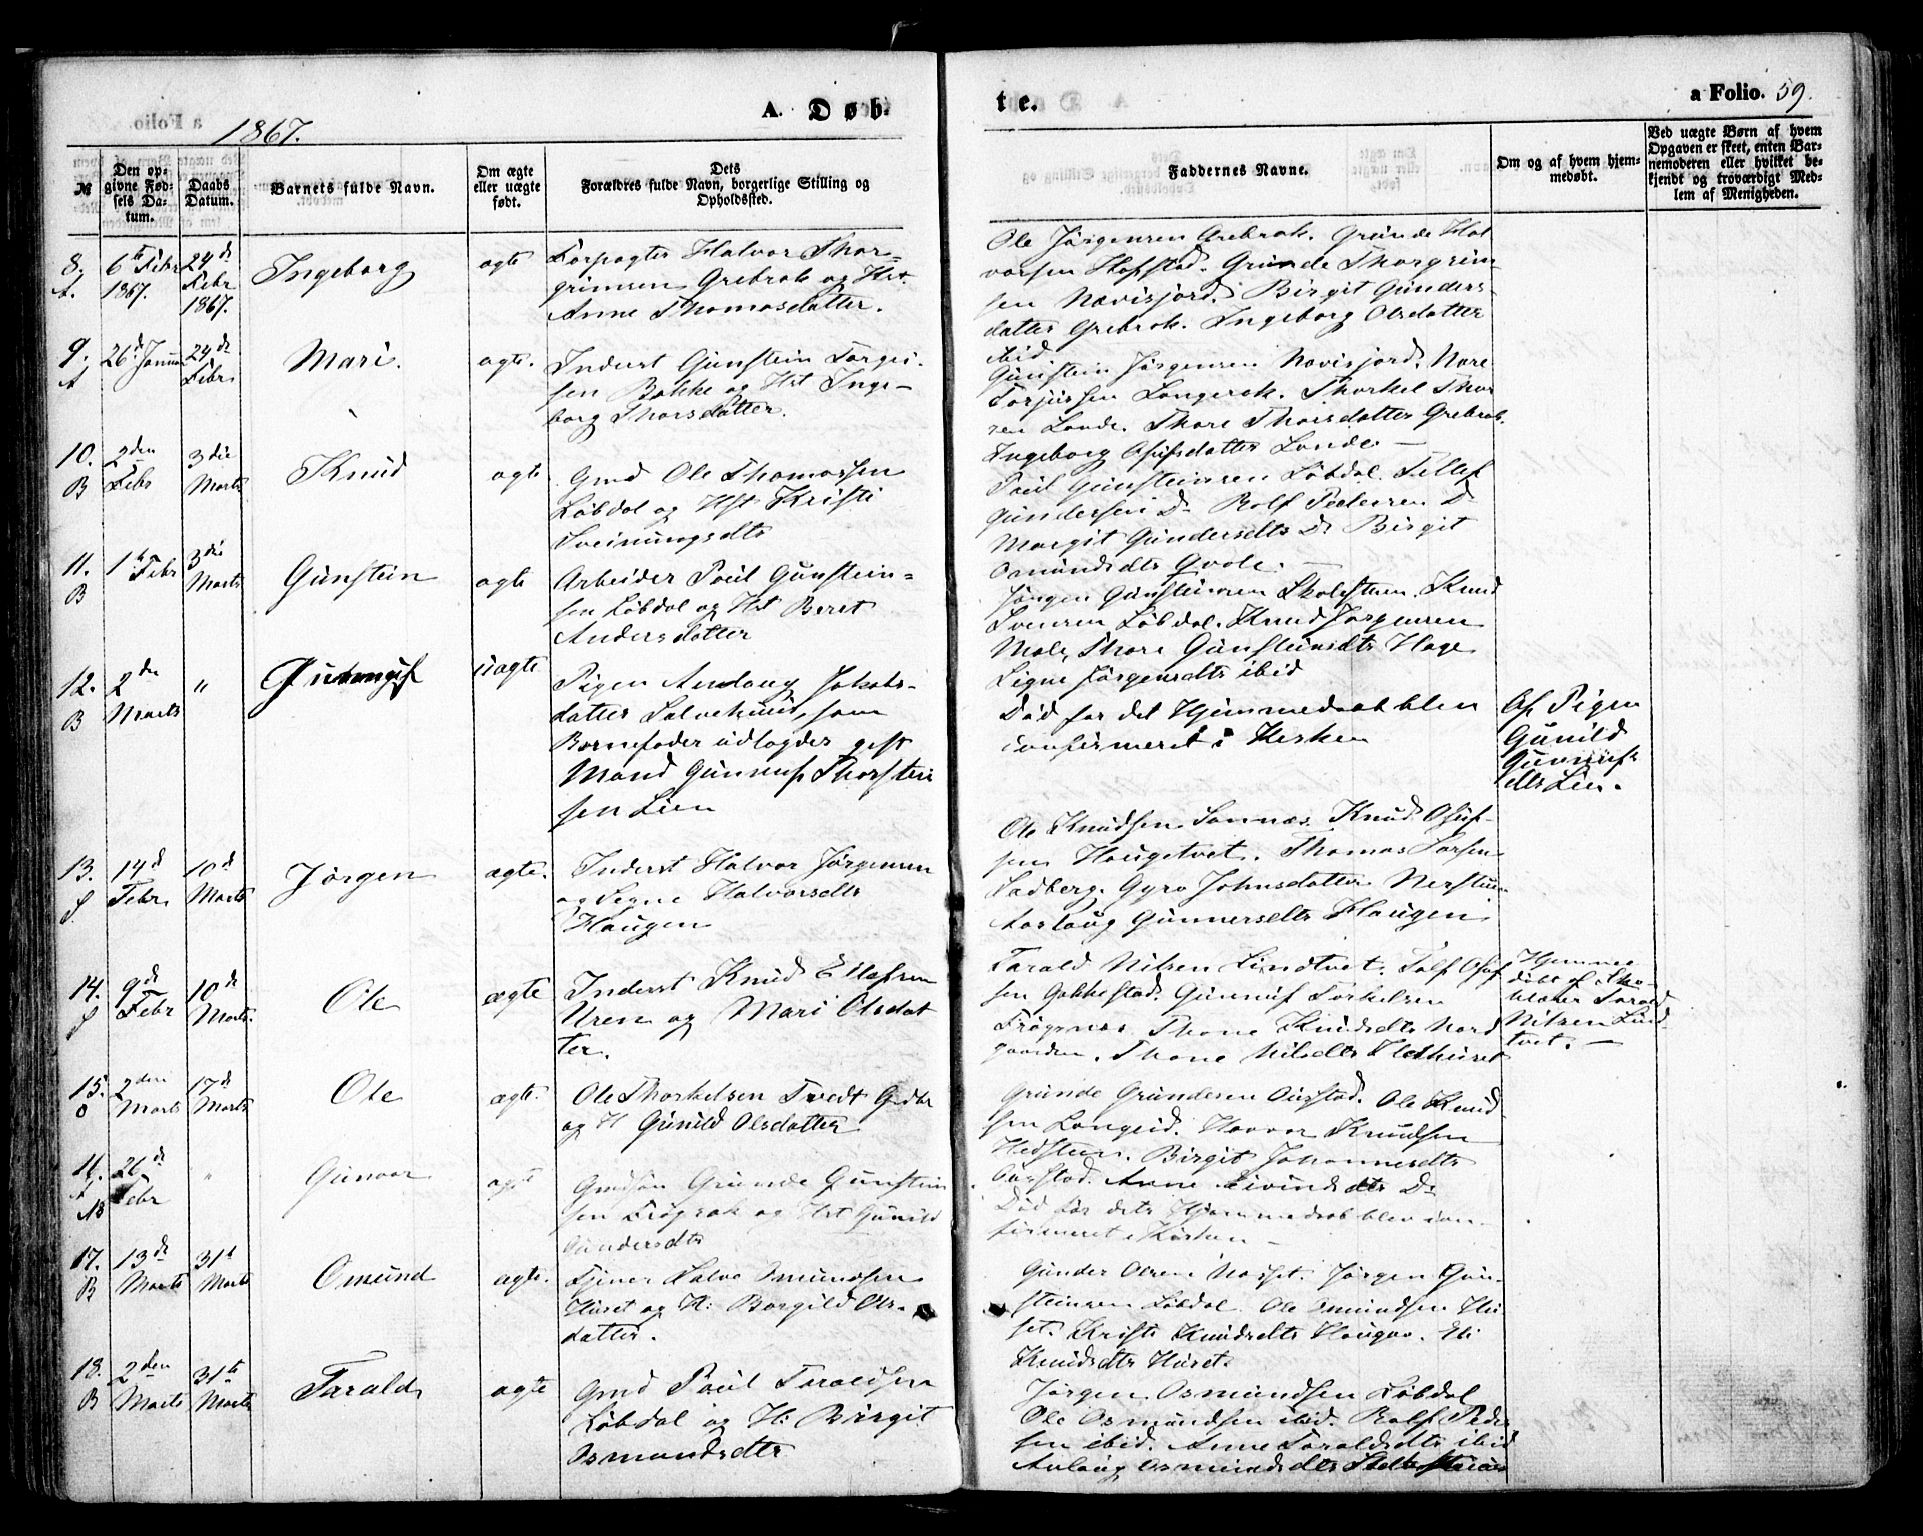 1867.
A. Døb
te.
a Folio. 59.
№
Den opgivne Fødsels Datum.
Daabs Datum.
Barnets fulde Navn.
Om ægte eller uægte født.
Dets Forældres fulde Navn, borgerlige Stilling og Opholdssted.
Faddernes Navne.
Om og af hvem hjemmedøbt.
Ved uægte Børn af hvem Opgaven er skeet, enten Barnemoderen eller hvilket bekjendt og troværdigt Medlem af Menigheden.
8. A.
6te Febr 1867.
24de Febr 1867.
Ingeborg
ægte
Forpagter Halvor Thor-
grimsen Grebrok og Hst.
Anne Thomasdatter.
Ole Jørgensen Grebrok. Grunde Hal
vorsen Hofstad. Grunde Thorgrim-
sen Navisjord. Birgit Gunders-
datter Grebrok. Ingeborg Olsdatter
ibid
9. A
26de Januar
24de Febr
Mari.
ægte.
Inderst Gunstein Torgei-
sen Bakke og Hst Inge-
borg Thorsdatter.
Gunstein Jørgensen Navisjord.
Torjussen Langerak. Thorkel Thor
sen Lande. Thore Thorsdatter Grebrok.
Ingeborg Asufsdatter Lande. —
10. B
2den Febr
3die Marts
Knud
ægte
Gmd Ole Thomassen
Løbdal og Hst Kristi
Sveinungsdtr
Poul Gunsteinsen Løbdal. Tellef
Gundersen Do Rolf Pedersen Do
Margit Gundersdtr Do Birgit
Osmundsdtr Qvale. —
11. B
1te Febr
3die Marts
Gunstein
ægte
Arbeider Poul Gunstein-
sen Løbdal og Hst Beret
Andersdatter
Jørgen Gunsteinsen Skolesteen. Knud
Svensen Løbdal. Knud Jørgensen
Mole, Thore Gunsteinsdtr Hage
Signe Jørgensdtr ibid
12. B
2de Marts
"
Gunnuf
uægte
Pigen Aaslaug Jakobs-
datter Salvehuus, som
Barnefader udlagdes gift
Mand Gunnuf Thorstein
sen Lien
Død før det Hjemmedaab blev
confirmeret i Kirken
Af Pigen
Gunild
Gunnufs
dtr Lien.
13. S
14de Febr
10de Marts
Jørgen
ægte.
Inderst Halvor Jørgensen
og Signe Halvorsdtr
Haugen
Ole Knudsen Sannæs. Knud Asuf-
sen Haugetvet. Thomas Larsen
Sadberg. Gyro Johnsdatter Nerstun
Aaslaug Gunnersdtr Haugen
14. S
9de Febr
10de Marts.
Ole
ægte
Inderst Knud Ellefsen
Uren og Mari Olsdat
ter.
Tarald Nilsen Lindtvet.
sen Gakkestad. Gunnuf Torkelsen
Frøysnæs. Thone Knudsdtr Nord
gaarden. Thone Nilsdtr Kledhuset
Hjemme
døbt af Sko-
lelærer Tarald
Nilsen Lind-
tvet. —
15. O
2den Marts
17de Marts
Ole
ægte.
Ole Thorkelsen Tvedt Gdbr
og H Gunild Olsdatter
Grunde Grundesen Augstad. Ole Knud
sen Langeid. Havor Knudsen
Hedsteen. Birgit Johannesdtr
Augstad. Anne Eivindsdtr Do
16.
26de Febr
"
Gunvor
ægte
Gmdson Grunde Gunstein
sen Frøysok og Hst Gunild
Gundersdtr
Død før dets Hjemmedaab blev con-
firmeret i Kirken —
17. B
13de Marts
31te Marts
Osmund
ægte.
Tjener Salve Osmundsen
Huset og H: Borgild Ols-
datter.
Gunder Olsen Næset. Jørgen Gun-
steinsen Løbdal. Ole Osmundsen Hu
set. Kristi Knudsdtr Haugaa.
Knudsdtr Huset.
18. B
2den Marts
31te Marts
Tarald
ægte
Gmd Poul Taraldsen
Løbdal og H: Birgit
Osmundsdtr
Jørgen Osmundsen Løbdal
Ole Osmundsen ibid. Rolf Peder
sen ibid. Anne Taraldsdtr ibid
Aslaug Osmundsdtr